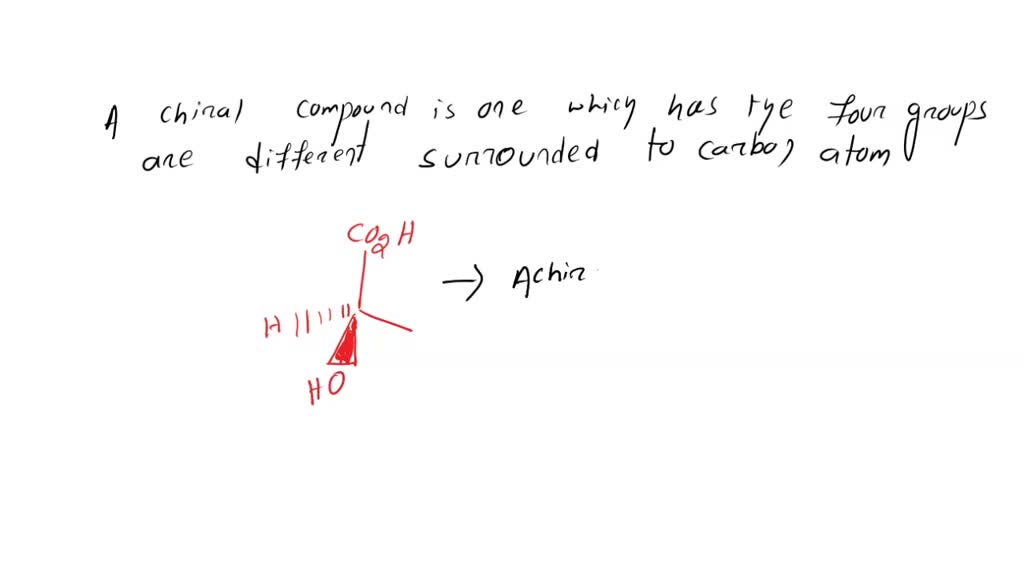 A chiral compound is one which has tye four groups
are different surrounded to carbon atom
CO2H
→ Achir
H
HO